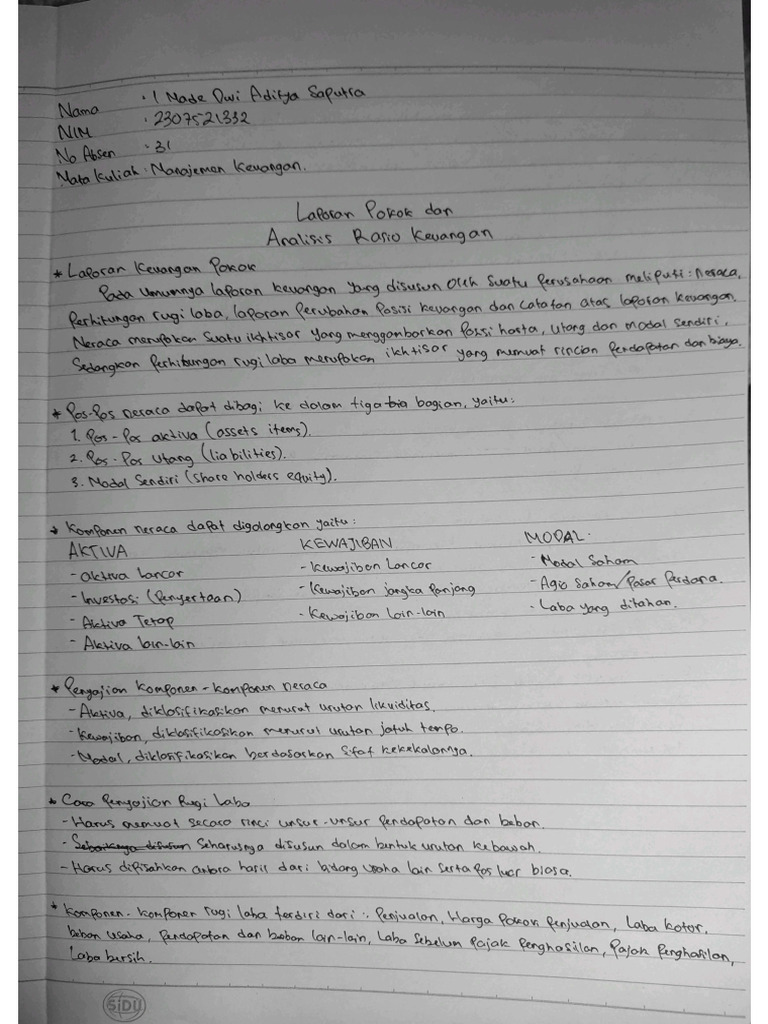 Nama : I Made Dwi Aditya Saputra
NIM : 2307521332
No Absen : 31
Mata Kuliah : Manajemen Keuangan.
Laporan Pokok dan
Analisis Rasio Keuangan
* Laporan Keuangan Pokok
Pada Umumnya laporan keuangan yang disusun oleh suatu perusahaan meliputi : neraca,
perhitungan rugi laba, laporan perubahan posisi keuangan dan catatan atas laporan keuangan.
Neraca merupakan suatu ikhtisar yang menggambarkan posisi harta, utang dan modal sendiri,
Sedangkan perhitungan rugi laba merupakan ikhtisar yang memuat rincian pendapatan dan biaya.
* Pos-Pos neraca dapat dibagi ke dalam tiga bagian, yaitu :
1. Pos - Pos aktiva (assets items).
2. Pos - Pos utang (liabilities).
3. Modal Sendiri (share holders equity).
* Komponen neraca dapat digolongkan yaitu :
AKTIVA KEWAJIBAN MODAL :
- aktiva lancar - Kewajiban Lancar - Modal Saham
- Investasi (Penyertaan) - Kewajiban jangka panjang - Agio Saham/Pasar Perdana.
- Aktiva Tetap - Kewajiban Lain-lain - Laba yang ditahan.
- Aktiva lain-lain
* Penyajian Komponen - komponen neraca
- Aktiva, diklasifikasikan menurut urutan likuiditas.
- Kewajiban, diklasifikasikan menurut urutan jatuh tempo.
- Modal, diklasifikasikan berdasarkan sifat kekekalannya.
* Cara Penyajian Rugi Laba
- Harus memuat secara rinci unsur-unsur pendapatan dan beban.
- Sebaiknya disusun Seharusnya disusun dalam bentuk urutan kebawah.
- Harus dipisahkan antara hasil dari bidang usaha lain serta pos luar biasa.
* Komponen - komponen rugi laba terdiri dari : Penjualan, Harga Pokok Penjualan, Laba kotor,
beban usaha, Pendapatan dan beban lain-lain, Laba Sebelum Pajak Penghasilan, Pajak Penghasilan,
Laba bersih.
SiDU